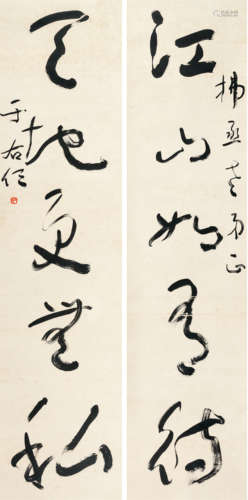 江山如有待
拂丞老弟正
天地更無私
于右任